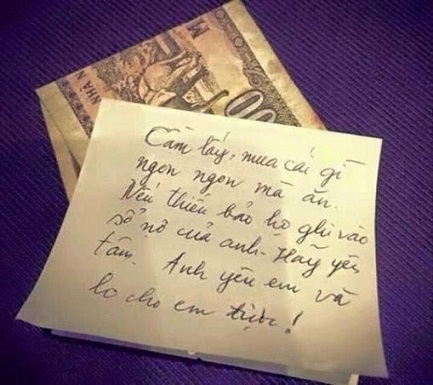 NHÀ N
00
M
Cầm lấy, mua cái gì
ngon ngon mà ăn.
Nếu thiếu bảo họ ghi vào
sổ nợ của anh. Hãy yên
tâm. Anh yêu em và
lo cho em được!